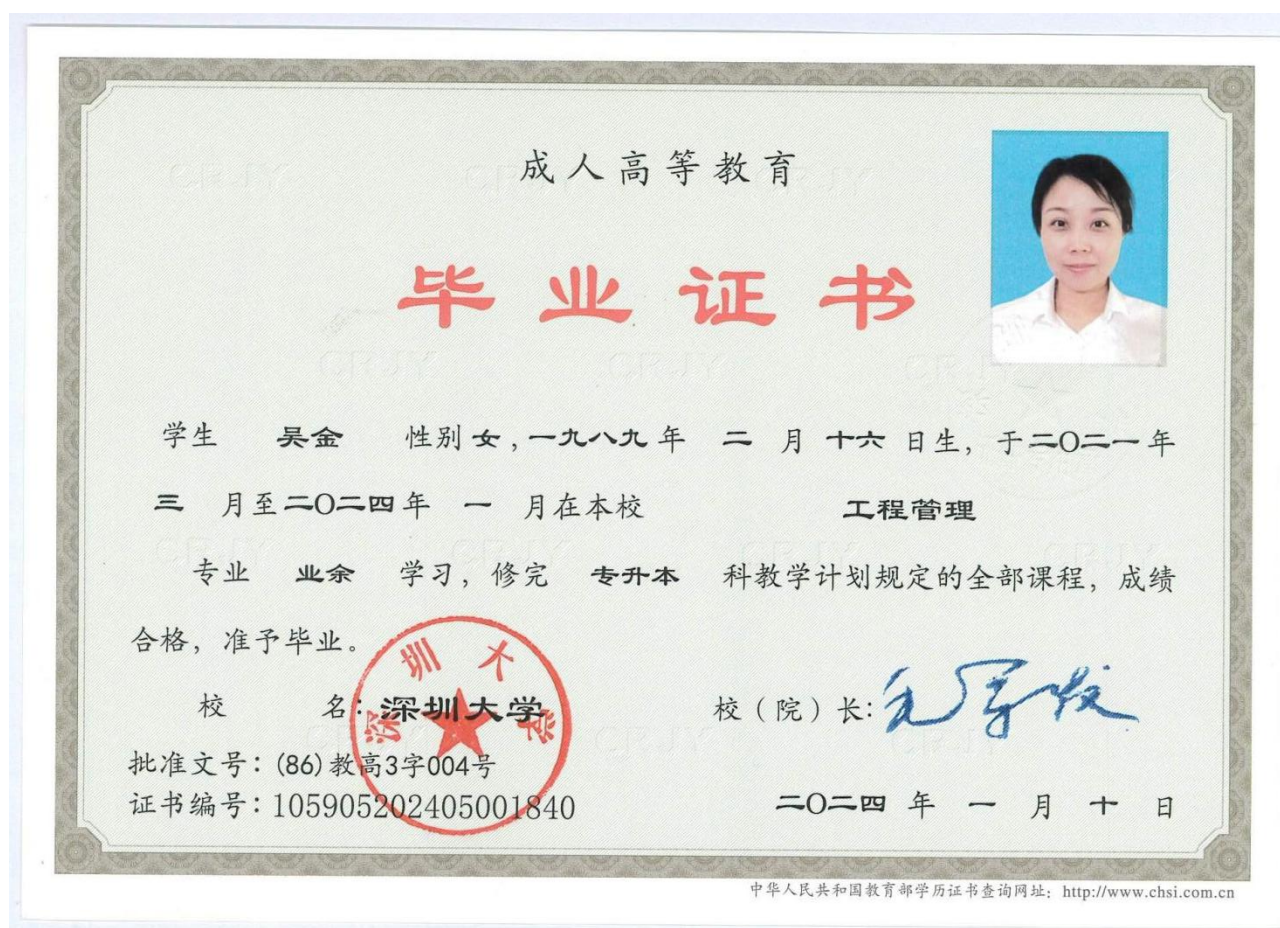 成人高等教育
毕业证书
学生 吴金 性别 女，一九八九年 二 月 十六 日生，于二〇二一年
三 月至二〇二四年 一 月在本校 工程管理
专业 业余 学习，修完 专升本 科教学计划规定的全部课程，成绩
合格，准予毕业。
校 名：深圳大学 校（院）长：毛军发
深圳大学
批准文号：(86)教高3字004号
证书编号：105905202405001840 二〇二四 年 一 月 十 日
中华人民共和国教育部学历证书查询网址：http://www.chsi.com.cn